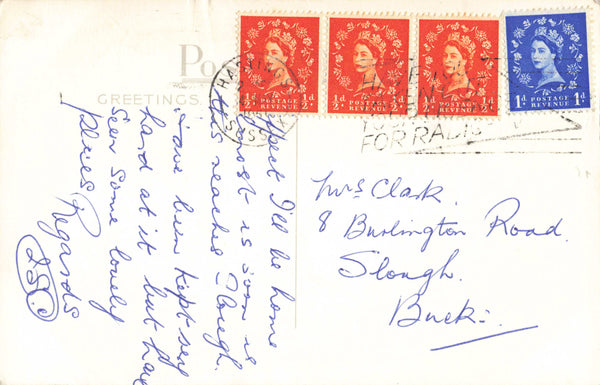 Pos
GREETINGS
HASTINGS
SUSSEX
½d POSTAGE REVENUE ½d
½d POSTAGE REVENUE ½d
½d POSTAGE REVENUE ½d
1d POSTAGE REVENUE 1d
FOR RADIO
I'll be home
almost as soon as
this reaches Slough.
have been kept very
hard at it but have
seen some lovely
places
Regards
Mrs Clark.
8 Burlington Road.
Slough.
Bucks.